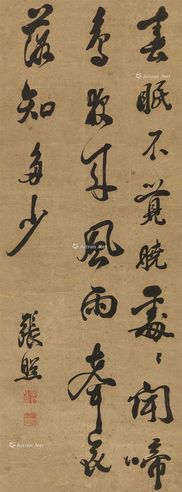 春眠不覺曉處〻聞啼
鳥夜来風雨聲花
落知多少
張照
Artron.Net